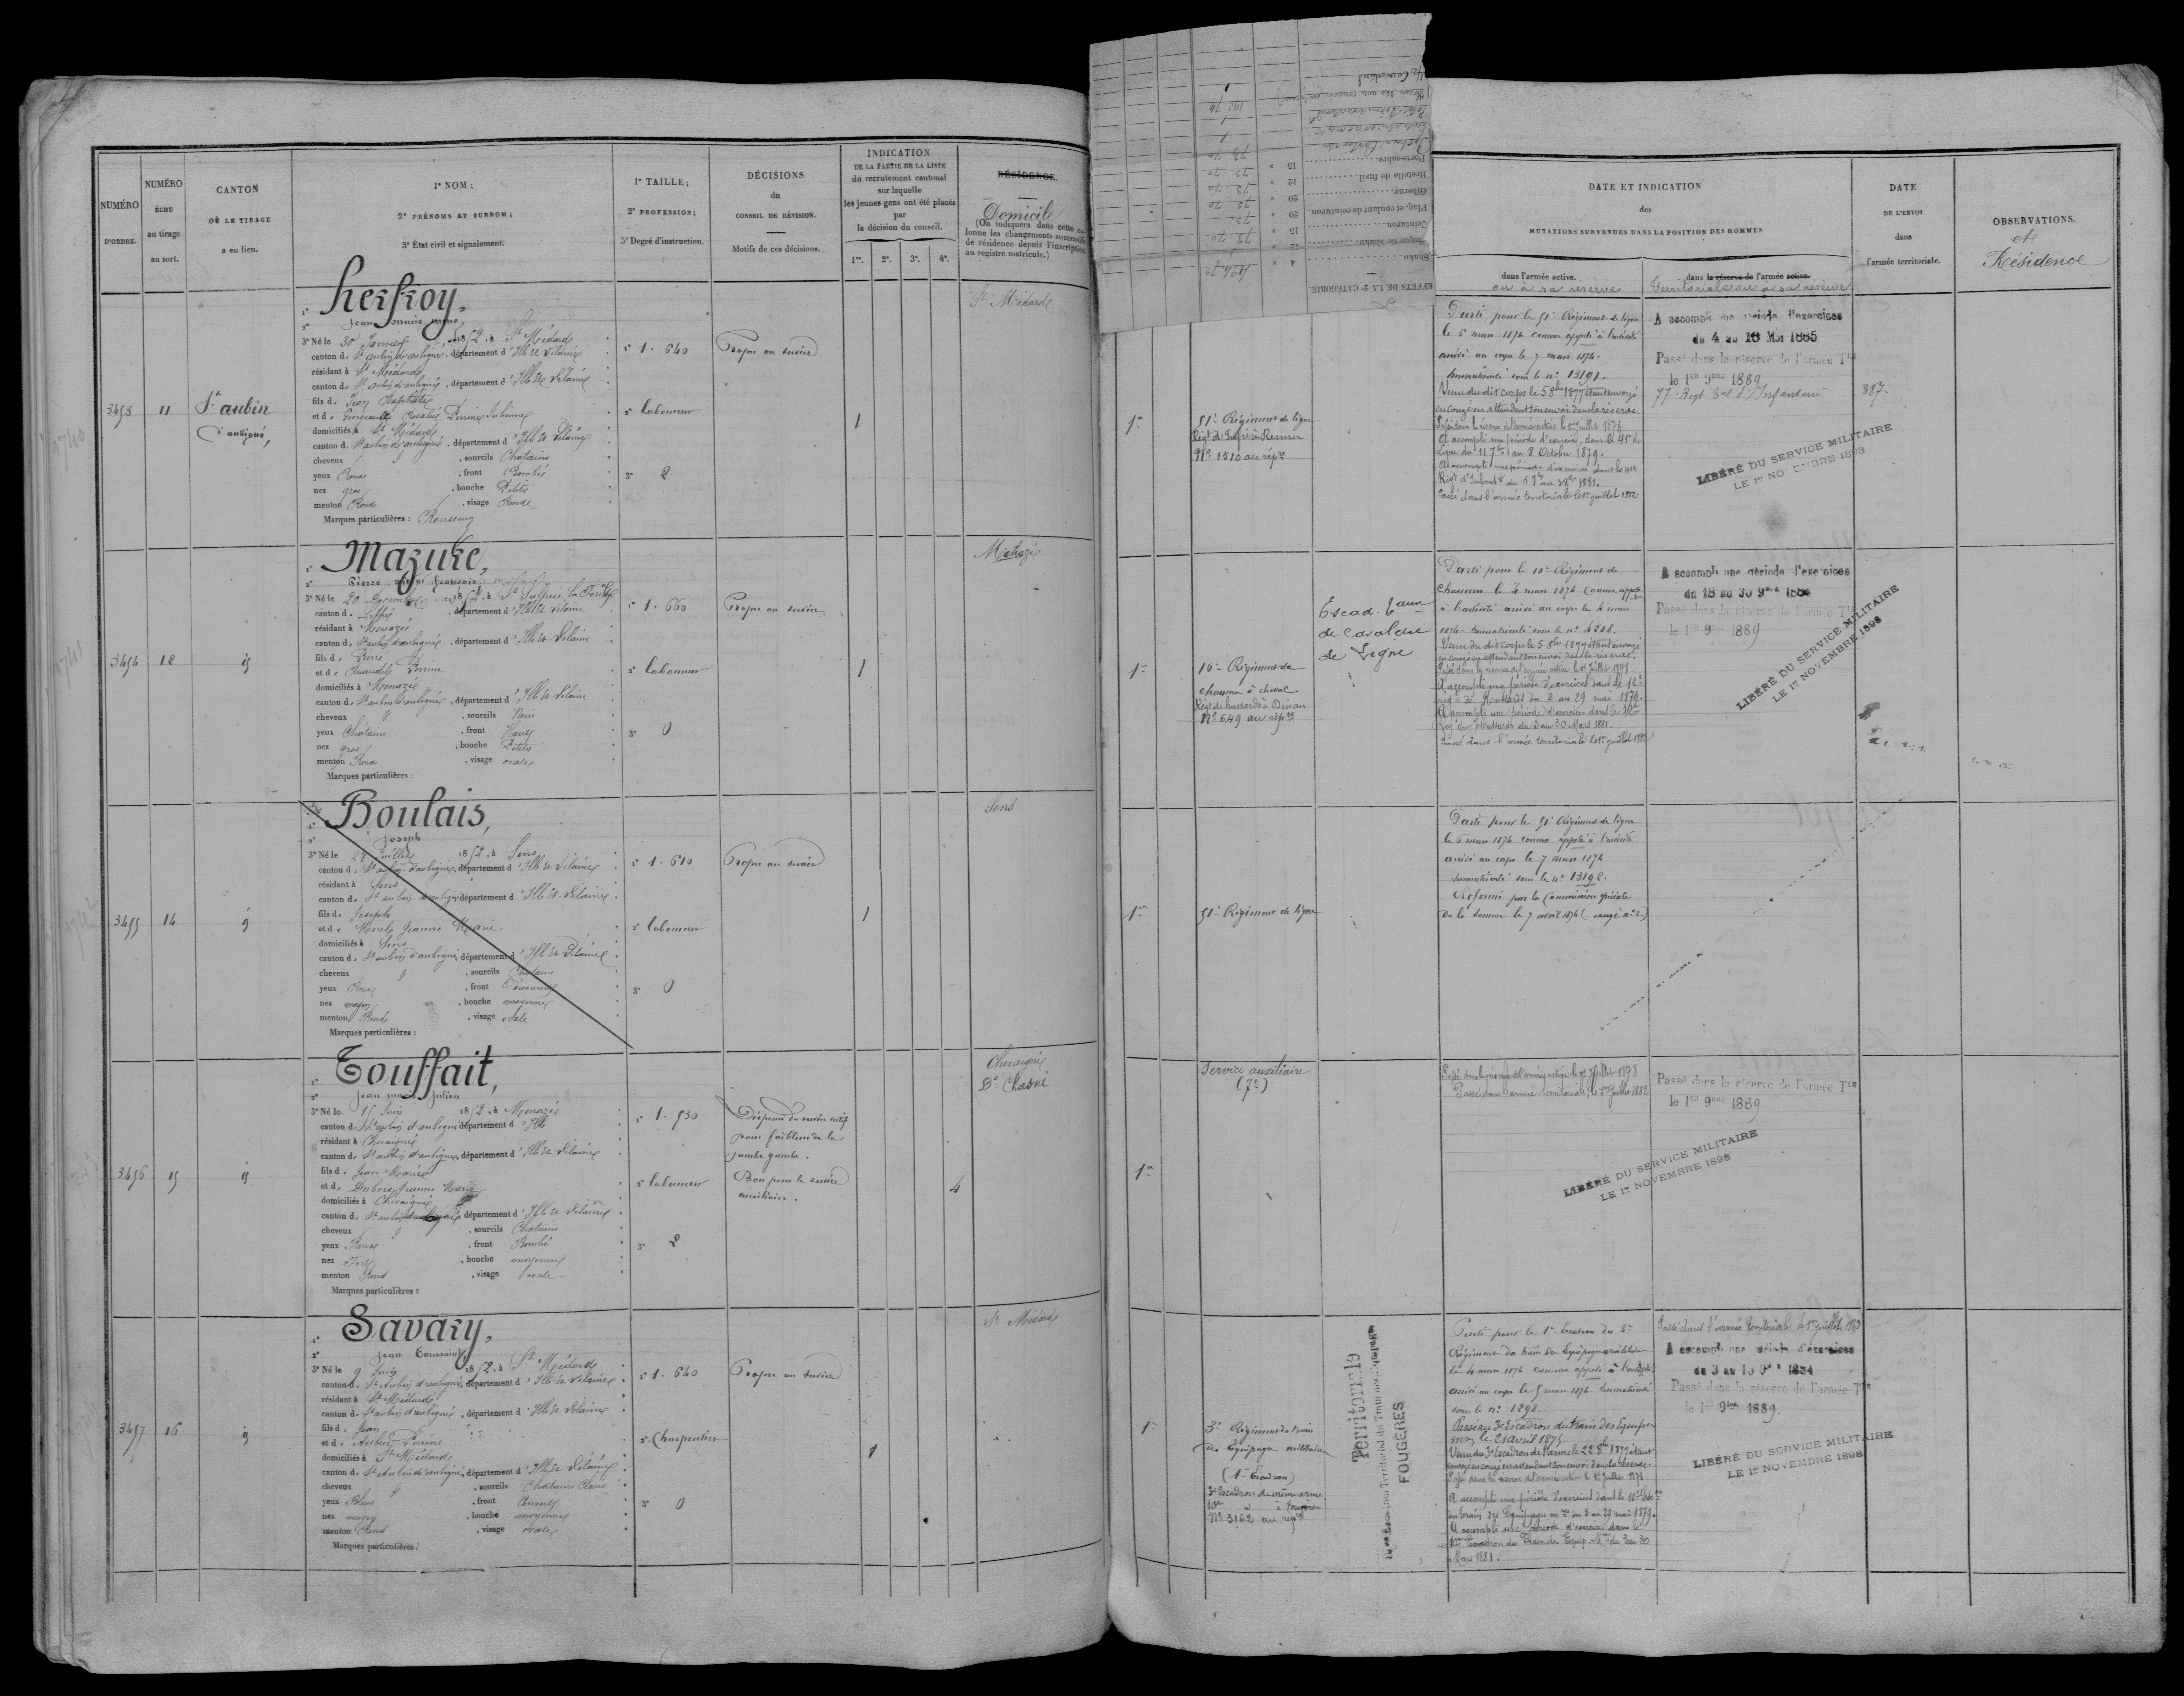 NUMÉRO
D'ORDRE.
NUMÉRO
ÉCHU
au tirage
au sort.
CANTON
OÙ LE TIRAGE
a eu lieu.
1° NOM;
2° PRÉNOMS ET SURNOM;
3° État civil et signalement.
1° TAILLE;
2° PROFESSION;
3° Degré d'instruction.
DÉCISIONS
du
CONSEIL DE RÉVISION.
Motifs de ces décisions.
INDICATION
DE LA PARTIE DE LA LISTE
du recrutement cantonal
sur laquelle
les jeunes gens ont été placés
par
la décision du conseil.
1re. 2e. 3e. 4e.
RÉSIDENCE.
Domicile
(On indiquera dans cette co-
lonne les changements successifs
de résidence depuis l'inscription
au registre matricule.)
3453
11
St aubin
d'aubigné,
1°
2° Jean marie
3° Né le 30 1852, à St Médard
canton d. St aubin d'aubigné, département d'Ille et Vilaine
résidant à St Médard
canton d. St aubin d'aubigné, département d'Ille et Vilaine
fils d. Jean Baptiste
et d.
domiciliés à St Médard
canton d. St aubin d'aubigné, département d'Ille et Vilaine
cheveux , sourcils Chatains
yeux Roux , front Bombé
nez gros , bouche Petite
menton Rond , visage Rond
Marques particulières :
1° 1.640
2° laboureur
3° 2
Propre au service
1
St Médard
3454
12
id
1° Mazure,
2° Pierre françois
3° Né le 20 Décembre 1852, à St Sulpice la Forêt
canton d. Liffré , département d'Ille et Vilaine
résidant à Mouazé
canton d. St aubin d'aubigné, département d'Ille et Vilaine
fils d. Pierre
et d. Perrine
domiciliés à Mouazé
canton d. St aubin d'aubigné, département d'Ille et Vilaine
cheveux , sourcils Noirs
yeux Chatains , front Haut
nez gros , bouche Petite
menton Rond , visage ovale
Marques particulières :
1° 1.660
2° laboureur
3° 0
Propre au service
1
Mouazé
3455
14
id
1° Boulais,
2° Joseph
3° Né le 28 Juillet 1852, à Sens
canton d. St aubin d'aubigné, département d'Ille et Vilaine
résidant à Sens
canton d. St aubin d'aubigné, département d'Ille et Vilaine
fils d. Joseph
et d. Jeanne Marie
domiciliés à Sens
canton d. St aubin d'aubigné, département d'Ille et Vilaine
cheveux , sourcils Chatains
yeux Roux , front
nez moyen , bouche moyenne
menton Rond , visage ovale
Marques particulières :
1° 1.610
2° laboureur
3° 0
Propre au service
1
Sens
3456
15
id
1° Touffait,
2° Jean marie Julien
3° Né le 15 Juin 1852, à Mouazé
canton d. St aubin d'aubigné département d'Ille
résidant à Chevaigné
canton d. St aubin d'aubigné, département d'Ille et Vilaine
fils d. Jean Marie
et d. Dubois Jeanne Marie
domiciliés à Chevaigné
canton d. St aubin d'aubigné, département d'Ille et Vilaine
cheveux , sourcils Chatains
yeux Roux , front Bombé
nez Fort , bouche moyenne
menton Rond , visage ovale
Marques particulières :
1° 1.530
2° laboureur
3° 2
Dispensé du service actif
pour faiblesse de la
jambe gauche.
Bon pour le service
auxiliaire.
4
Chevaigné
Dt Chasné
3457
16
id
1° Savary,
2° Jean Toussaint
3° Né le 9 Juin 1852, à St Médard
canton d. St Aubin d'aubigné, département d'Ille et Vilaine
résidant à St Médard
canton d. St aubin d'aubigné, département d'Ille et Vilaine
fils d. Jean
et d. Aubrée Perrine
domiciliés à St Médard
canton d. St Aubin d'aubigné, département d'Ille et Vilaine
cheveux , sourcils Chatains Clairs
yeux Bleus , front Couvert
nez moyen , bouche moyenne
menton Rond , visage ovale
Marques particulières :
1° 1.640
2° Charpentier
3° 0
Propre au service
1
St Médard
EFFETS DE LA 2e CATÉGORIE.
Shako 4 "
Plaque de shako 12 "
Ceinturon 15 "
Plaq. et coulant de ceinturon 20 "
Giberne 20 "
Bretelle de fusil 12 "
Porte-sabre 15 "
DATE ET INDICATION
des
MUTATIONS SURVENUES DANS LA POSITION DES HOMMES
dans l'armée active.
ou à sa réserve
dans la réserve de l'armée active.
Territoriale ou à sa réserve
DATE
DE L'ENVOI
dans
l'armée territoriale.
OBSERVATIONS.
et
Résidence
1re
51e Régiment de ligne
Régt d'Infrie à Rennes
No 1510 au répre
Parti pour le 51e Régiment de ligne
le 6 mars 1874 comme appelé à l'activité
arrivé au corps le 7 mars 1874.
Immatriculé sous le no 13191.
Venu du dit corps le 5 8bre 1877 étant envoyé
en congé en attendant son envoi dans la réserve.
Passé dans la réserve de l'armée active le 1er Juillet 1878
A accompli une période d'exercices dans le 41e de
Ligne du 11 7bre au 8 Octobre 1879.
A accompli une période d'exercices dans le 41e
Régt d'Infantie du 6 7bre au 3 8bre 1881.
Passé dans l'armée territoriale le 1er juillet 1882
A accompli une période d'exercices
du 4 au 16 Mai 1885
Passé dans la réserve de l'armée Tle
le 1er 9bre 1889
77e Régt Tal d'Infanterie
387
LIBÉRÉ DU SERVICE MILITAIRE
LE 1er NOVEMBRE 1898
1re
10e Régiment de
chasseurs à cheval
Régt de hussards à Dinan
No 649 au répre
Escad. Taux
de Cavalerie
de Ligne
Parti pour le 10e Régiment de
Chasseurs le 4 mars 1874 comme appelé
à l'activité arrivé au corps le 4 mars
1874. Immatriculé sous le no 4208.
Venu du dit corps le 5 8bre 1877 étant envoyé
en congé en attendant son envoi dans la réserve.
Passé dans la réserve de l'armée active le 1er Juillet 1878
A accompli une période d'exercices dans le 12e
régt de Hussards du 2 au 29 mai 1879.
A accompli une période d'exercices dans le 12e
Régt de Hussards du 3 au 30 Mars 1881.
Passé dans l'armée territoriale le 1er juillet 1882
A accompli une période d'exercices
du 18 au 30 9bre 1884
Passé dans la réserve de l'armée Tle
le 1er 9bre 1889
LIBÉRÉ DU SERVICE MILITAIRE
LE 1er NOVEMBRE 1898
1re
51e Régiment de ligne
Parti pour le 51e Régiment de ligne
le 6 mars 1874 comme appelé à l'activité
arrivé au corps le 7 mars 1874
Immatriculé sous le no 13192.
Réformé par la Commission spéciale
de la Somme le 7 avril 1874 (congé no 2)
1re
Service auxiliaire
(7e)
Passé dans la réserve de l'armée active le 1er Juillet 1878
Passé dans l'armée territoriale, le 1er juillet 1882
Passé dans la réserve de l'armée Tle
le 1er 9bre 1889
LIBÉRÉ DU SERVICE MILITAIRE
LE 1er NOVEMBRE 1898
1re
3e Régiment du train
des Equipages militaires
(1er Escadron)
3e Escadron de même arme
à Fougères
No 3162 au répre
Territoriale
Escadron Territorial du Train des Equipages
FOUGÈRES
Parti pour le 1er Escadron du 3e
Régiment du train des Equipages militaires
le 4 mars 1874 comme appelé à l'activité
arrivé au corps le 5 mars 1874. Immatriculé
sous le no 1298.
Passé au 3e Escadron du train des Equipages
mres le 21 avril 1875.
Venu du 3e Escadron de l'arme le 22 8bre 1877 étant
envoyé en congé en attendant son envoi dans la réserve.
Passé dans la réserve de l'armée active le 1er Juillet 1878
A accompli une période d'exercices dans le 10e Escdon
du train des Equipages mres du 2 au 29 mai 1879.
A accompli une période d'exercices dans le
10e Escadron du Train des Equip. Mres du 3 au 30
Mars 1881.
Passé dans l'armée territoriale le 1er juillet 1882
A accompli une période d'exercices
du 3 au 15 9bre 1884
Passé dans la réserve de l'armée Tle
le 1er 9bre 1889.
LIBÉRÉ DU SERVICE MILITAIRE
LE 1er NOVEMBRE 1898